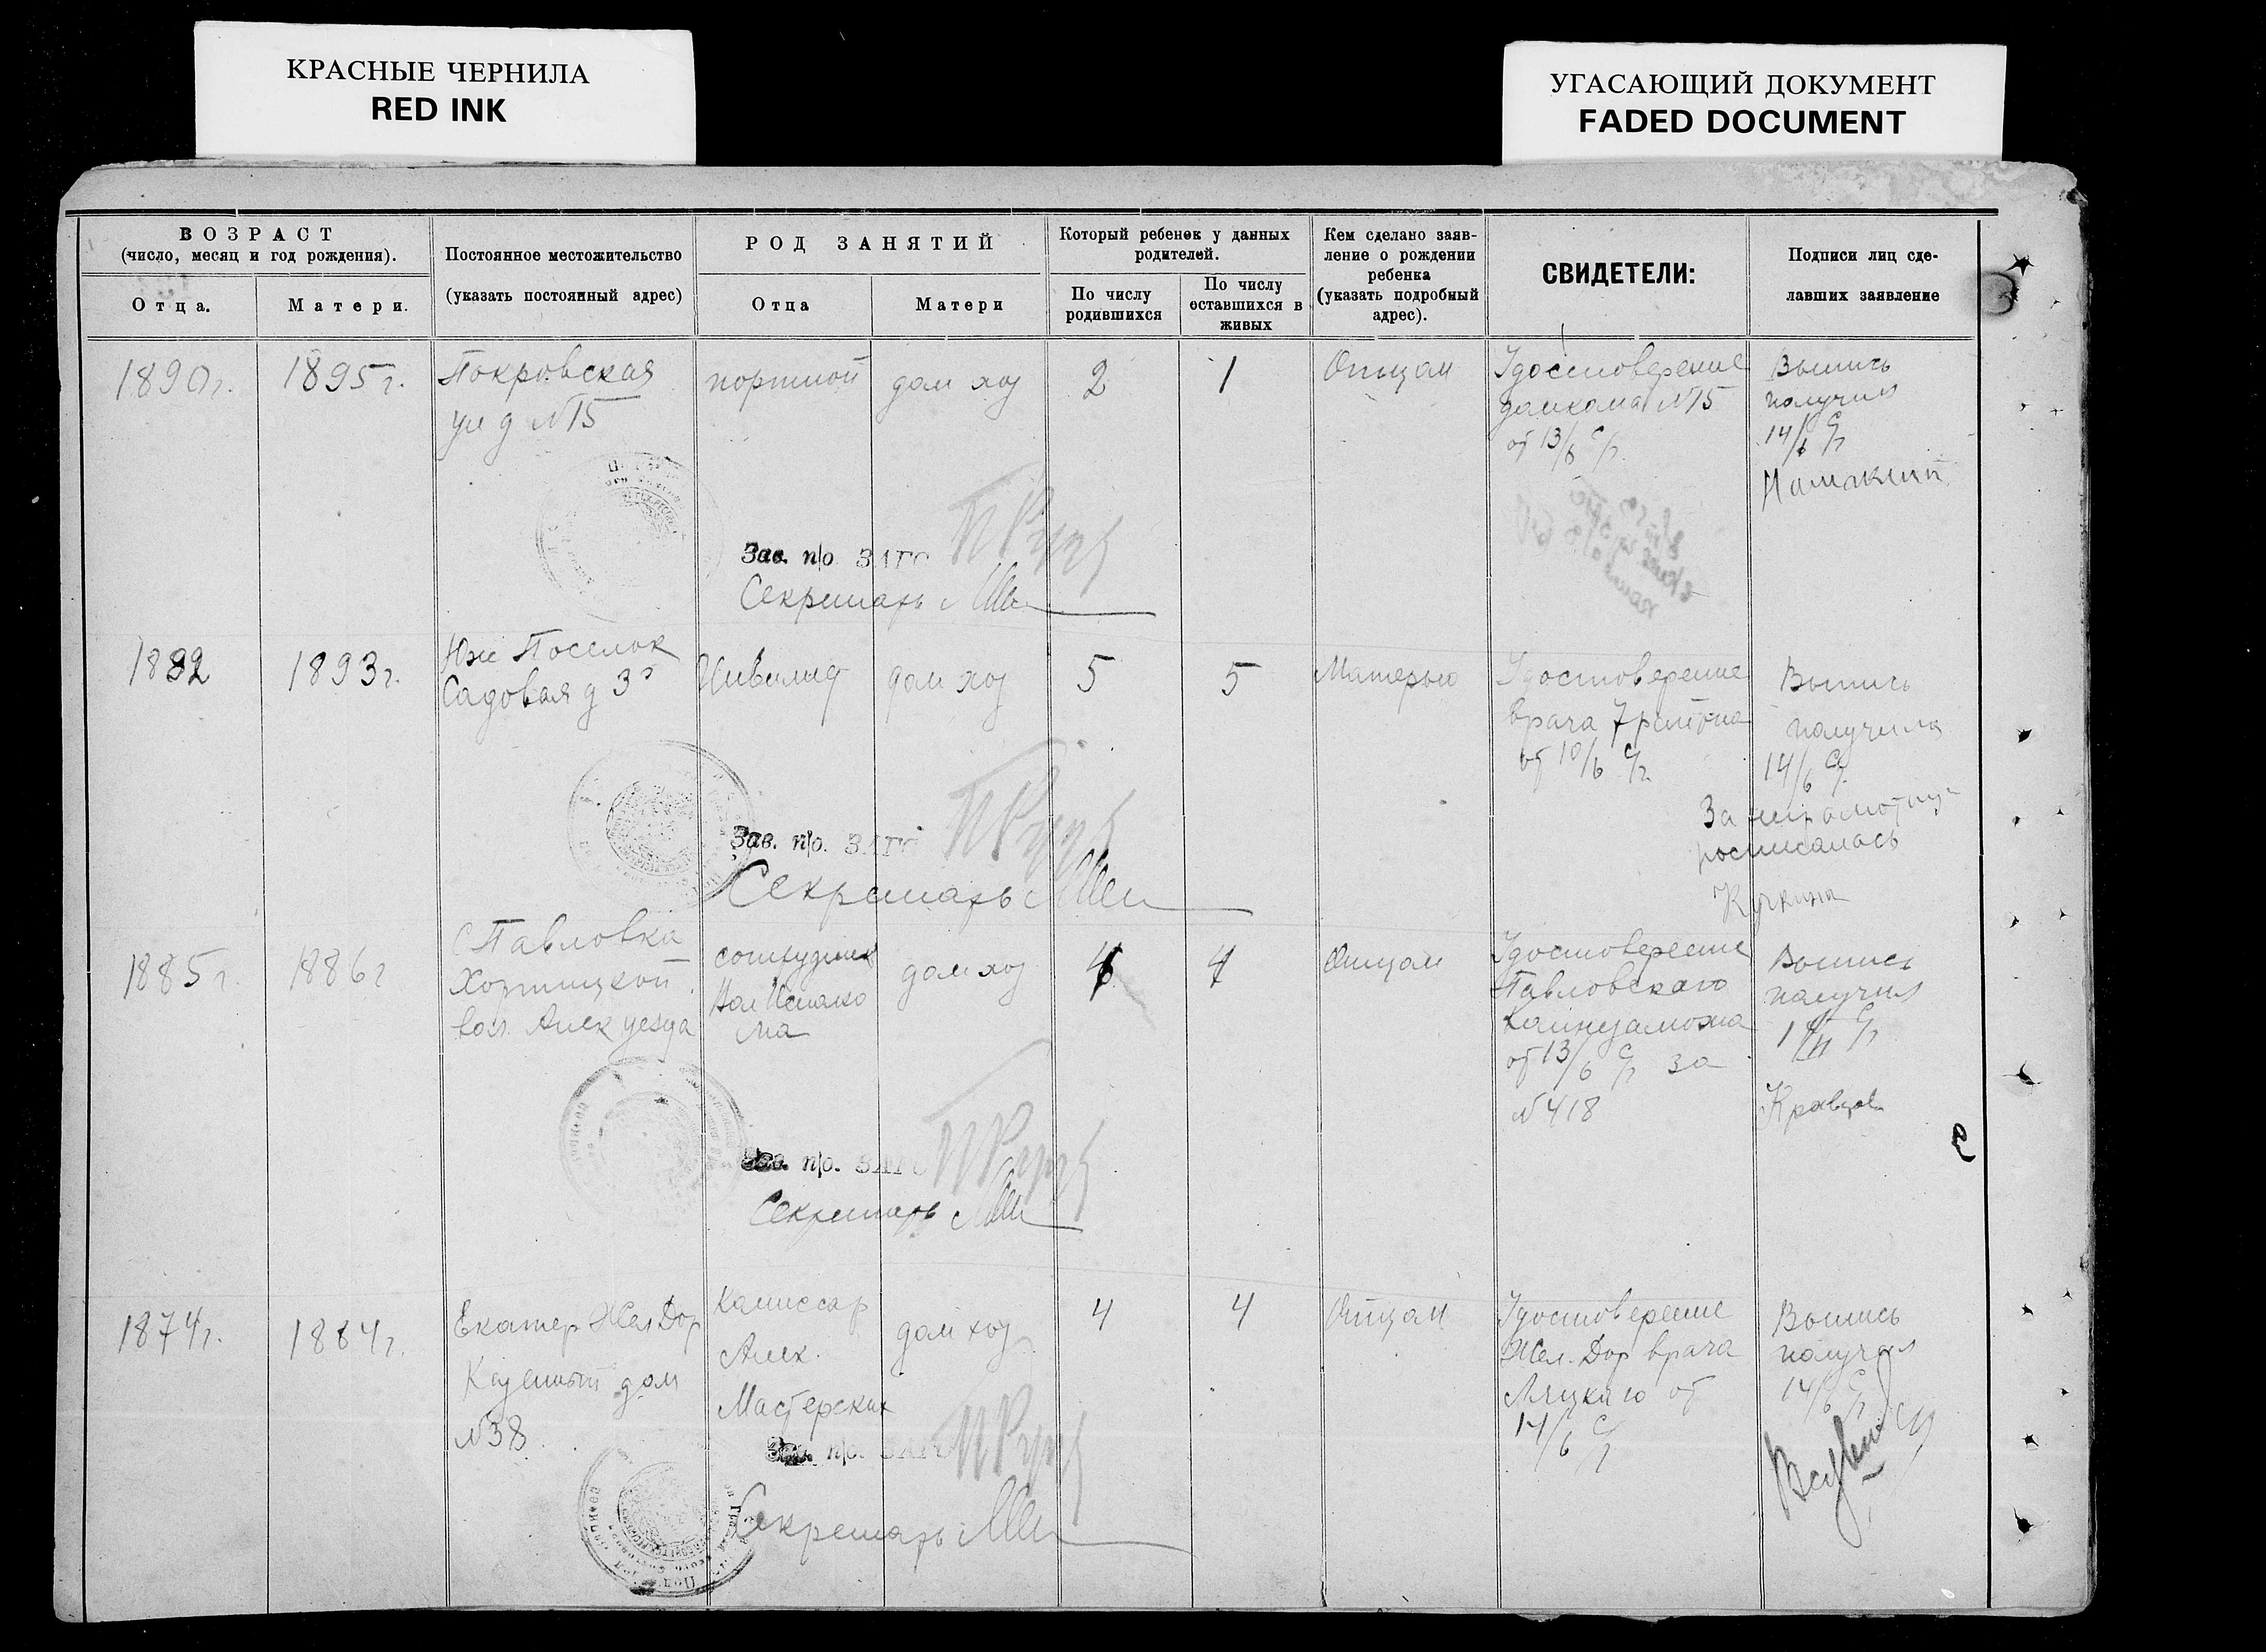 КРАСНЫЕ ЧЕРНИЛА
RED INK
УГАСАЮЩИЙ ДОКУМЕНТ
FADED DOCUMENT
ВОЗРАСТ
(число, месяц и год рождения).
Отца.
Матери.
Постоянное местожительство
(указать постоянный адрес)
РОД ЗАНЯТИЙ
Отца
Матери
Который ребенек у данных
родителей.
По числу
родившихся
По числу
оставшихся в
живых
Кем сделано заяв-
ление о рождении
ребенка
(указать подробный
адрес).
СВИДЕТЕЛИ:
Подписи лиц сде-
лавших заявление
1890г.
1895г.
Покровская
ул д №15
портной
дом хоз
2
1
Отцом
Удостоверение
домкома №15
от 13/6 с/г.
Выпись
получил
14/6 с/г
Зав. п/о ЗАГС
Секретарь
1892
1893г.
Юж Поселок
Садовая д
Инвалид
дом хоз
5
5
Матерью
Удостоверение
врача 7 района
от 10/6 с/г.
Выпись
получила
14/6 с/г.
За неграмотну
росписалась
Кучкина
Зав. п/о. ЗАГС
Секретарь
1885г
1886г
С Павловка
Хортицкой
вол. Алек уезда
сотрудник
Вол Исполко
ма
дом хоз
4
4
Отцом
Удостоверение
Павловского
Комнезаможа
от 13/6 с/г за
№418
Выпись
получил
с/г
Кравцов
Зав. п/о. ЗАГС
Секретарь
1874г.
1884г.
Екатер Жел Дор
Казенный дом
№38
Комиссар
Алек.
Мастерских
дом хоз
4
4
Отцом
Удостоверение
Жел. Дор врача
от
14/6 с/г
Выпись
получил
14/6 с/г
Зав. п/о. ЗАГС
Секретарь